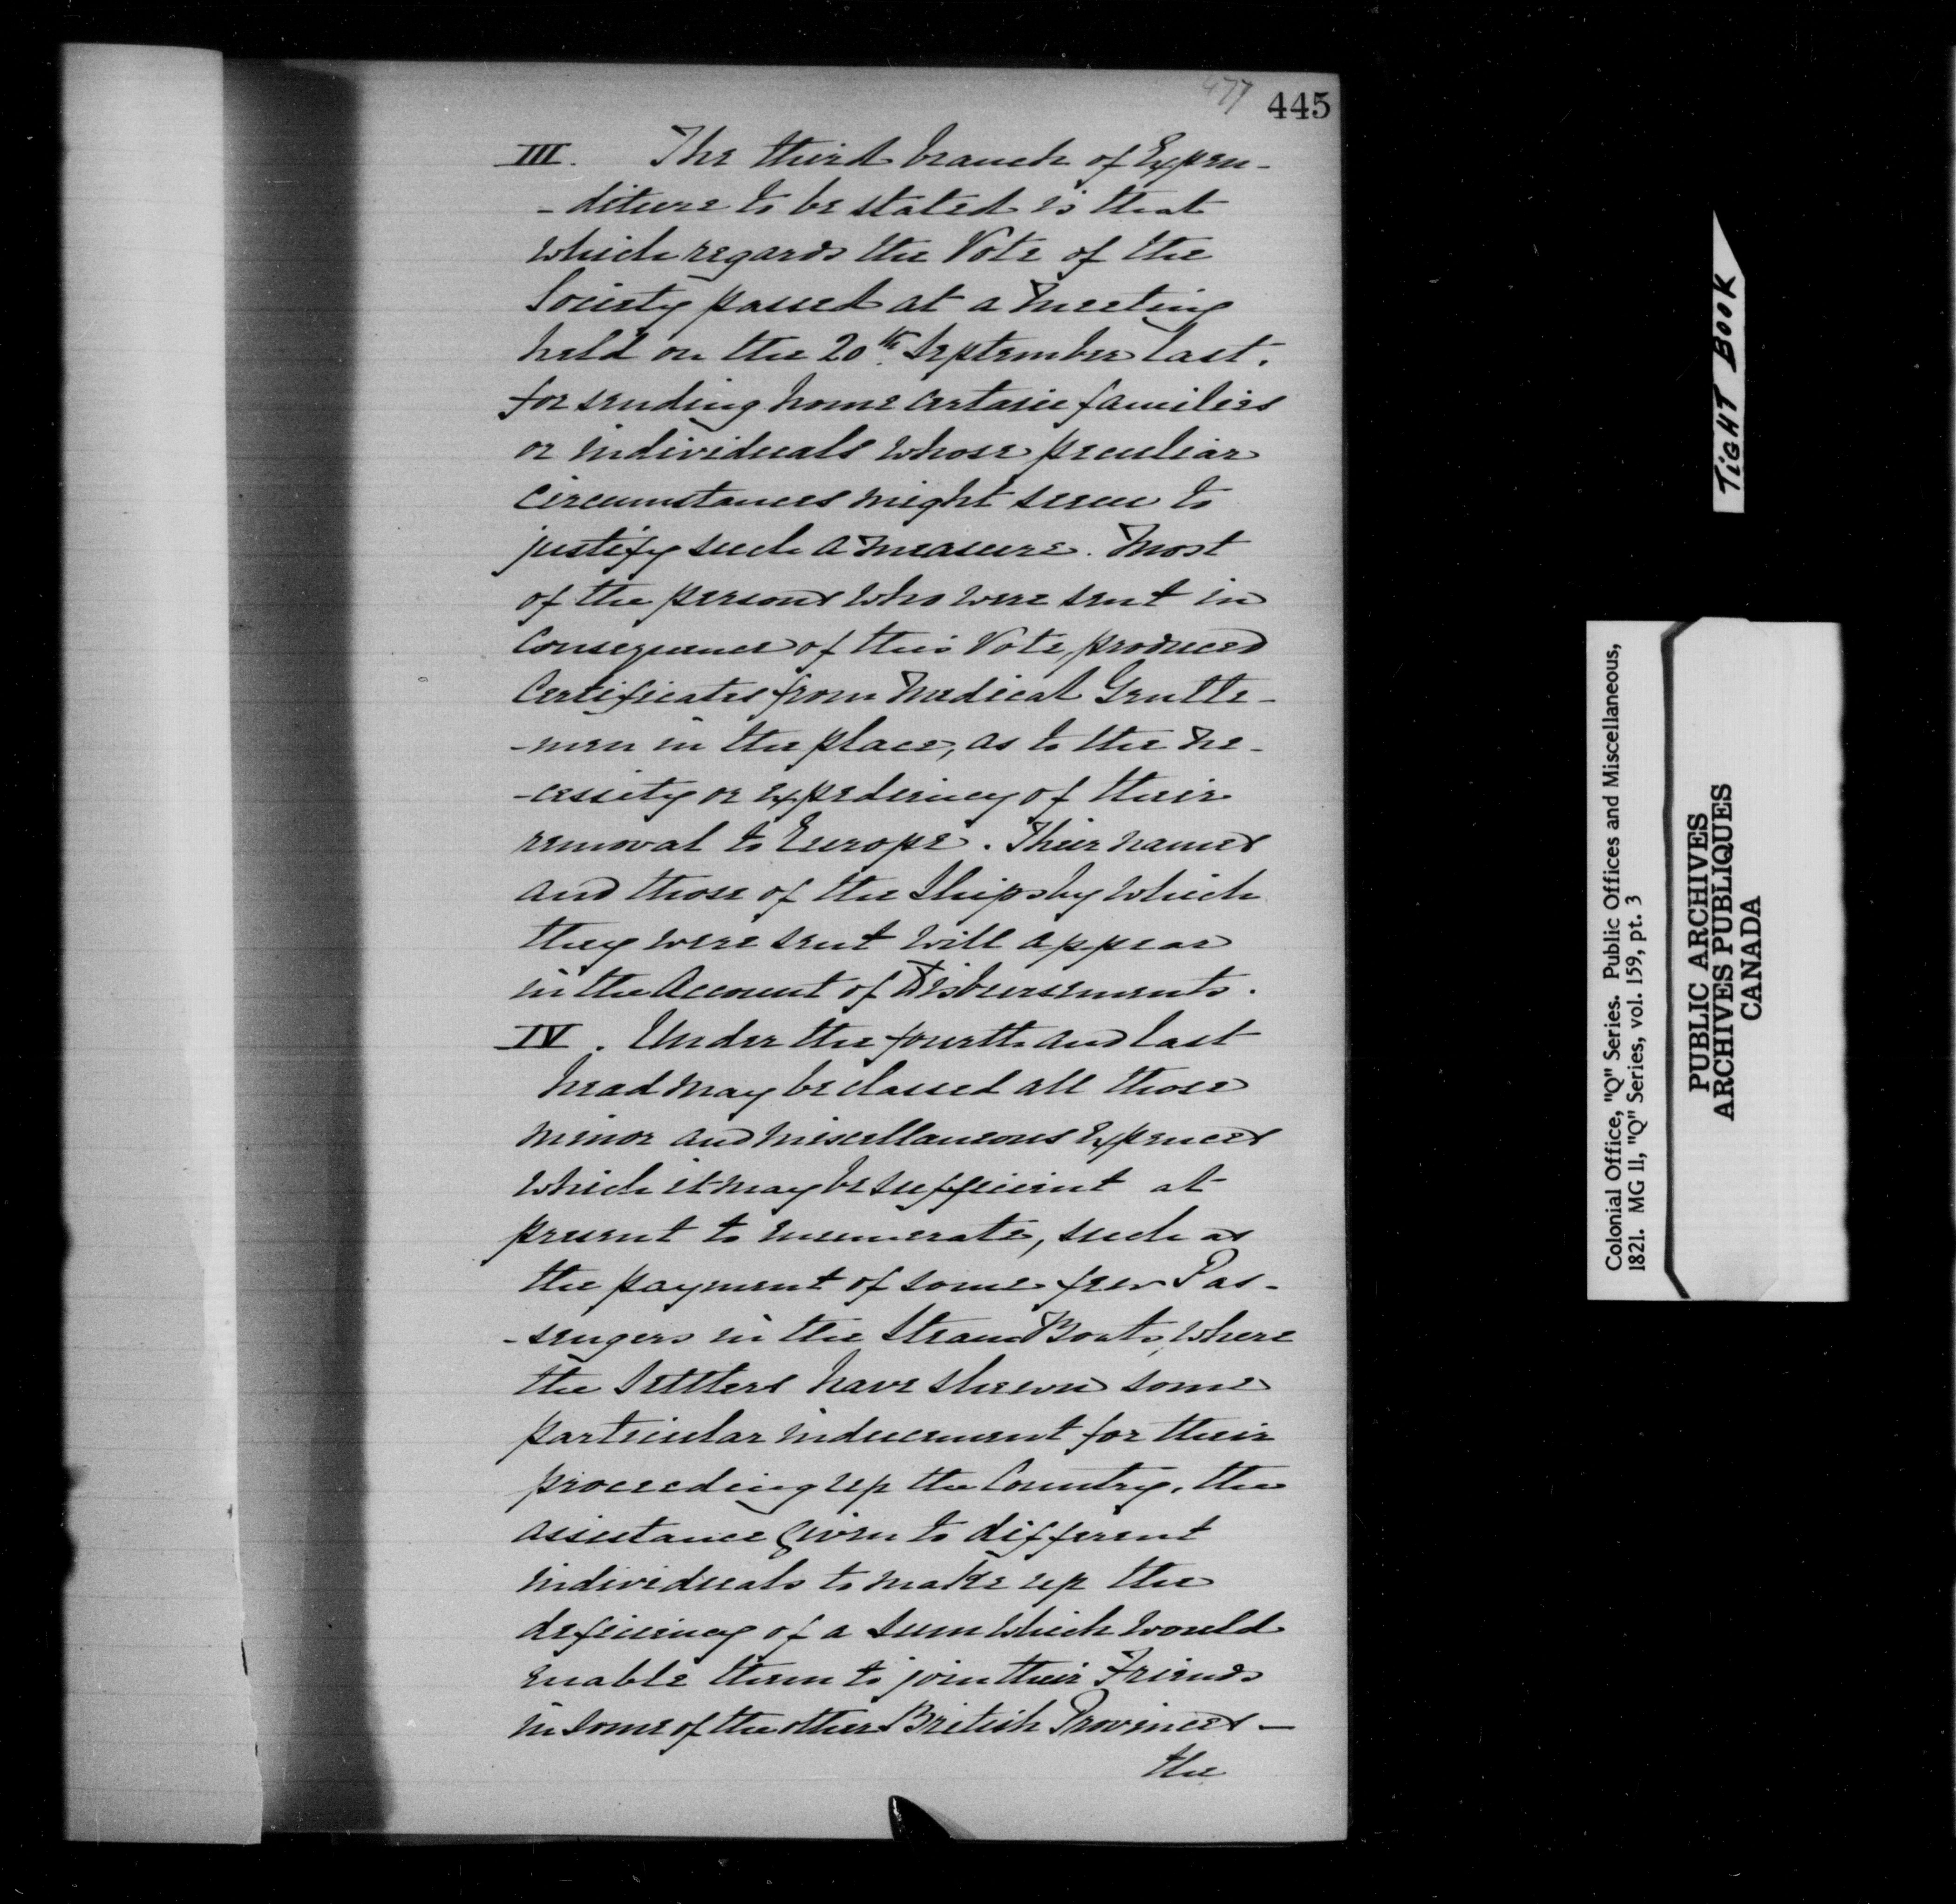 477
445
III. The third branch of Expen-
-diture to be stated is that
which regards the Vote of the
Society passed at a Meeting
held on the 20th September last.
for sending home certain families
or individuals whose peculiar
circumstances might seem to
justify such a measure. Most
of the persons who were sent in
consequence of this Vote, produced
Certificates from Medical Gentle-
-men in the place, as to the ne-
-cessity or expediency of their
removal to Europe. Their names
and those of the Ships by which
they were sent will appear
in the Account of Disbursements.
IV. Under the fourth and last
head may be classed all those
minor and miscellaneous expences
which it may be sufficient at
present to enumerate, such as
the payment of some few Pas-
-sengers in the Steam Boats, where
the Settlers have shewn some
particular inducement for their
proceeding up the Country, the
assistance given to different
individuals to make up the
deficiency of a sum which would
enable them to join their Friends
in some of the other British Provinces—
the
TIGHT BOOK
Colonial Office, "Q" Series. Public Offices and Miscellaneous,
1821. MG 11, "Q" Series, vol. 159, pt. 3
PUBLIC ARCHIVES
ARCHIVES PUBLIQUES
CANADA